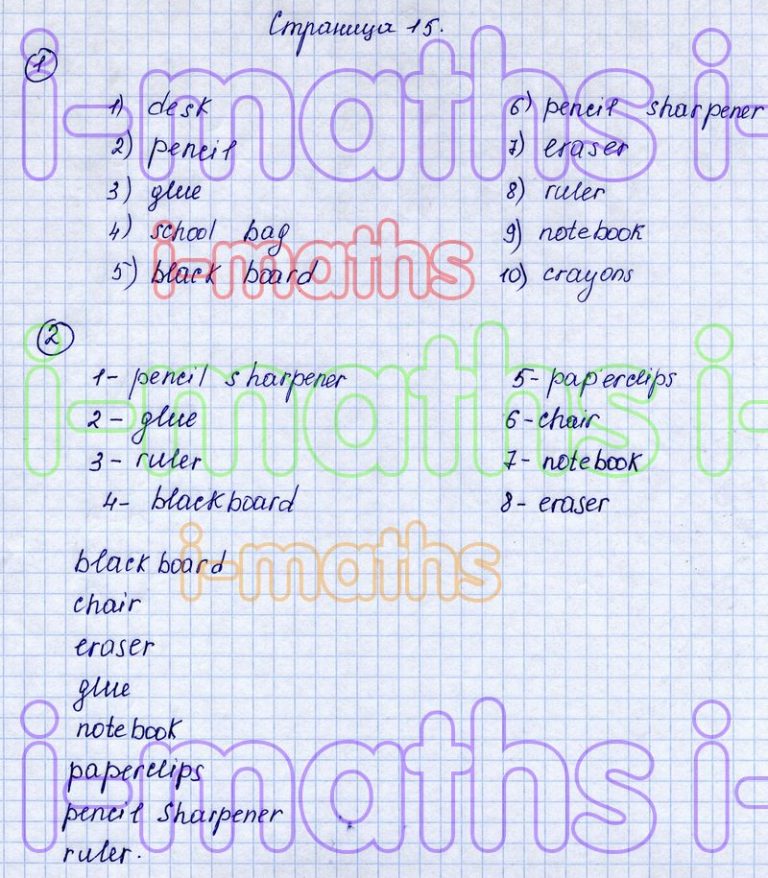 Страница 15.
1
1) desk
2) pencil
3) glue
4) school bag
5) black board
6) pencil sharpener
7) eraser
8) ruler
9) notebook
10) crayons
2
1- pencil sharpener
2- glue
3- ruler
4- blackboard
5- paperclips
6- chair
7- notebook
8- eraser
blackboard
chair
eraser
glue
notebook
paperclips
pencil Sharpener
ruler.
i-maths i-
i-maths
i-maths i-
i-maths
i-maths i-